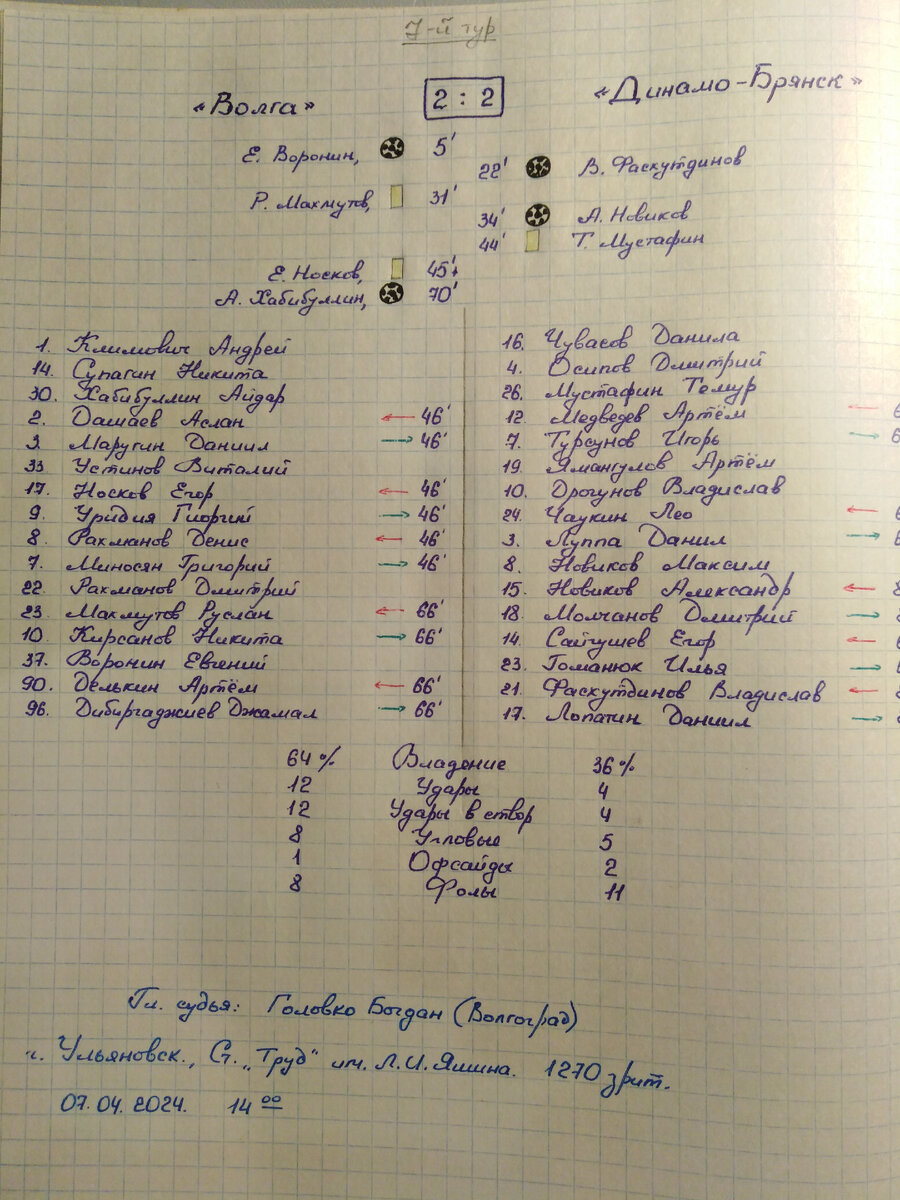 7-й тур
«Волга» 2 : 2 «Динамо-Брянск»
Е. Воронин, 5'
22' В. Фасхутдинов
Р. Махмутов, 31'
34' А. Новиков
44' Т. Мустафин
Е. Носков, 45'+
А. Хабибуллин, 70'
1. Климович Андрей
14. Супагин Никита
30. Хабибуллин Айдар
2. Дашаев Аслан ← 46'
3. Маругин Даниил → 46'
33 Устинов Виталий
17. Носков Егор ← 46'
9. Уридия Гиоргий → 46'
8. Рахманов Денис ← 46'
7. Миносян Григорий → 46'
22. Рахманов Дмитрий
23. Махмутов Руслан ← 66'
10. Кирсанов Никита → 66'
37. Воронин Евгений
90. Делькин Артём ← 66'
96. Дибиргаджиев Джамал → 66'
16. Чувасов Данила
4. Осипов Дмитрий
26. Мустафин Темур
12 Медведев Артём ←
7. Турсунов Игорь →
19. Ямангулов Артём
10. Дрогунов Владислав
24. Чаукин Лео ←
3. Луппа Данил →
8. Новиков Максим
15. Новиков Александр ←
18. Молчанов Дмитрий →
14. Сайгушев Егор ←
23. Гоманюк Илья →
21. Фасхутдинов Владислав ←
17. Лопатин Даниил →
64% Владение 36%
12 Удары 4
12 Удары в створ 4
8 Угловые 5
1 Офсайды 2
8 Фолы 11
Гл. судья: Головко Богдан (Волгоград)
г. Ульяновск., Ст. „Труд" им. Л.И.Яшина. 1270 зрит.
07.04.2024. 14 00